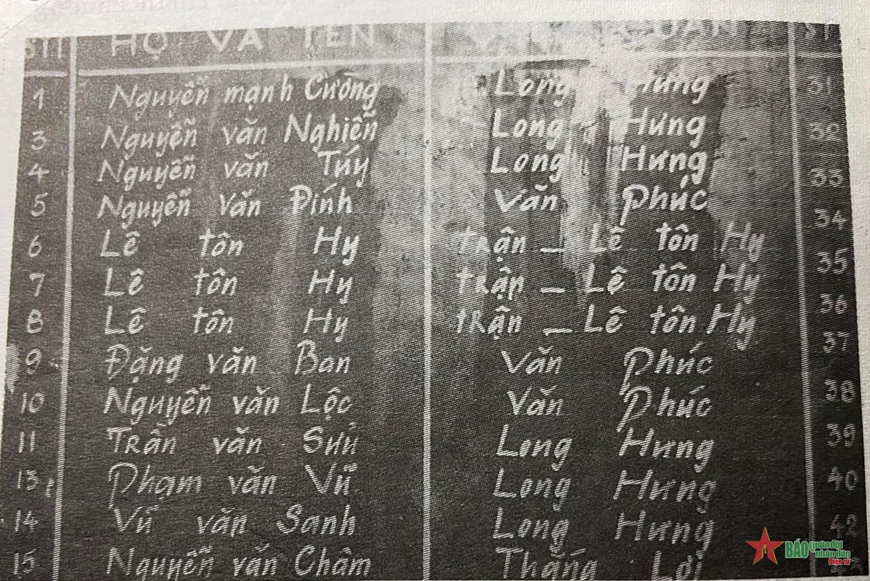 STT HỌ VÀ TÊN QUÁN ST
1 Nguyễn mạnh Cường Long Hưng 31
3 Nguyễn văn Nghiễn Long Hưng 32
4 Nguyễn văn Túy Long Hưng 33
5 Nguyễn Văn Đính Văn Phúc 34
6 Lê tôn Hy trận – Lê tôn Hy 35
7 Lê tôn Hy trận – Lê tôn Hy 36
8 Lê tôn Hy trận – Lê tôn Hy 37
9 Đặng văn Ban Văn Phúc 38
10 Nguyễn văn Lộc Văn Phúc 39
11 Trần văn Sửu Long Hưng 40
13 Phạm văn Vũ Long Hưng 42
14 Vũ văn Sanh Long Hưng
15 Nguyễn văn Châm Thắng Lợi
BÁO quân đội nhân dân Điện tử